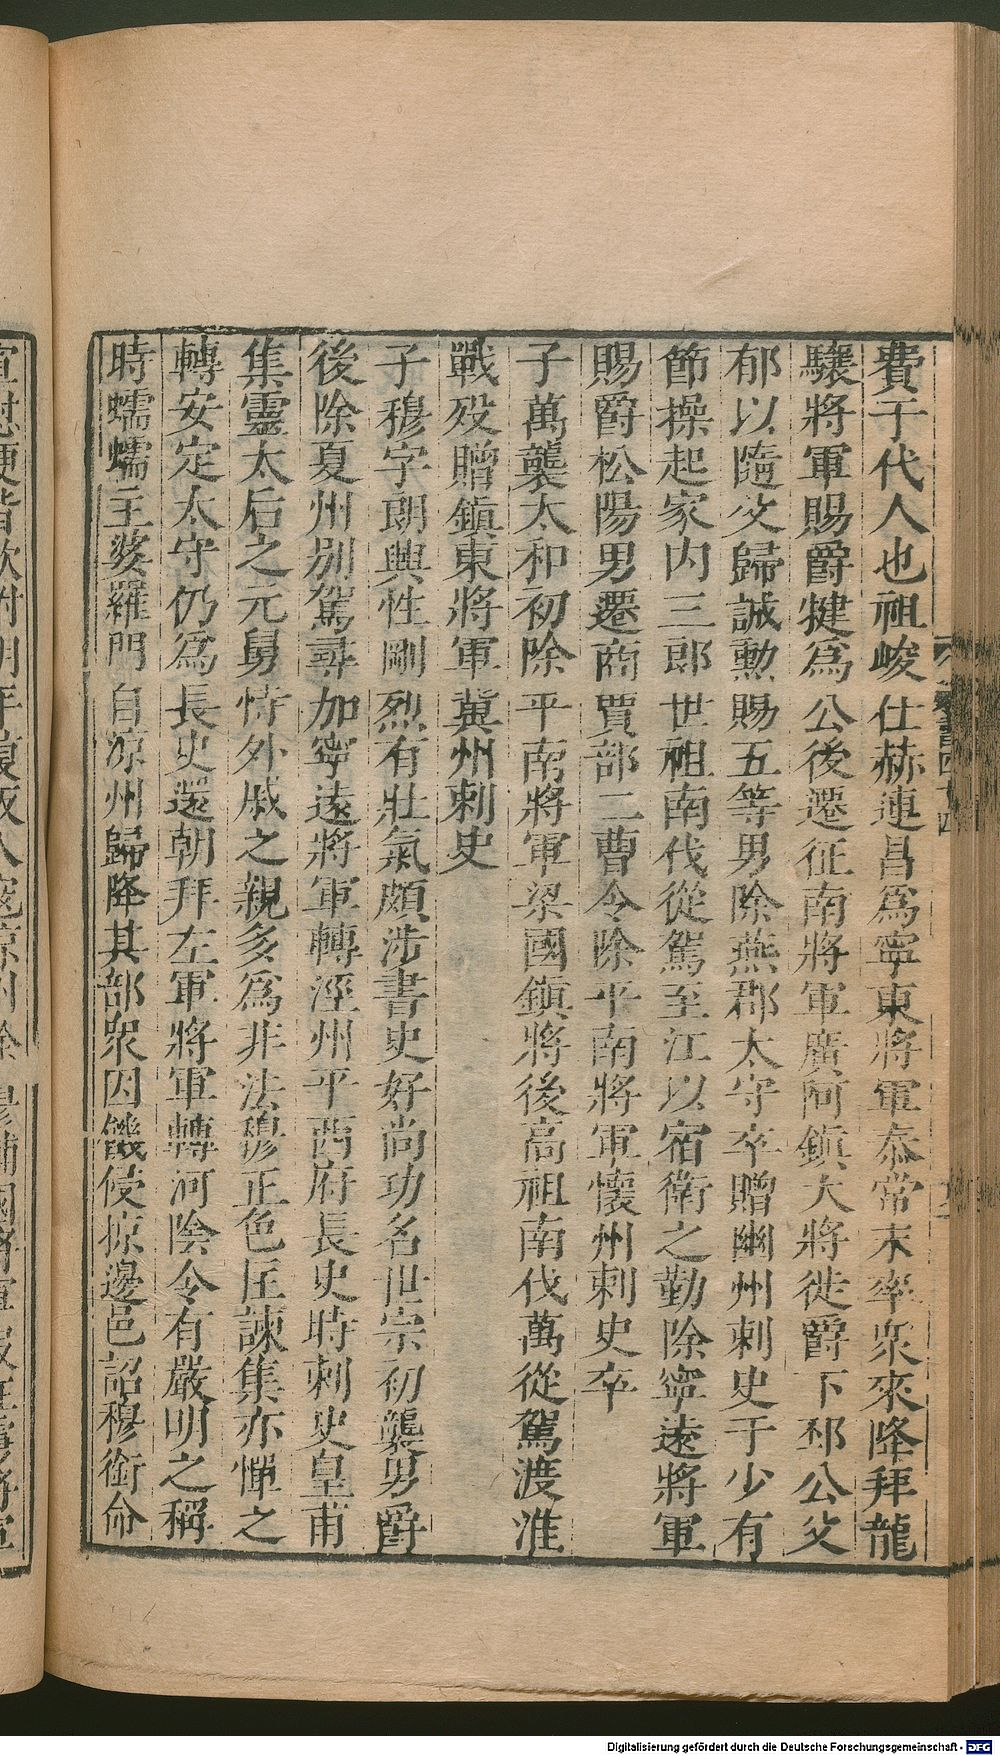 費于代人也祖峻仕赫連昌爲寧東將軍泰常末率衆來降拜龍
驤將軍賜爵犍爲公後遷征南將軍廣阿鎮大將徙爵下邳公父
郁以隨父歸誠勲賜五等男除燕郡太守卒贈幽州刺史于少有
節操起家内三郎世祖南伐從駕至江以宿衛之勤除寧遠將軍
賜爵松陽男遷商賈部二曹令除平南將軍懷州刺史卒
子萬襲太和初除平南將軍梁國鎮將後高祖南伐萬從駕渡淮
戰歿贈鎮東將軍冀州刺史
子穆字朗興性剛烈有壯氣頗涉書史好尚功名世宗初襲男爵
後除夏州别駕尋加寧遠將軍轉涇州平西府長史時刺史皇甫
集靈太后之元舅恃外戚之親多爲非法穆正色匡諫集亦憚之
轉安定太守仍爲長史還朝拜左軍將軍轉河陰令有嚴明之稱
時蠕蠕主婆羅門自凉州歸降其部衆因饑侵掠邊邑詔穆銜命
Digitalisierung gefördert durch die Deutsche Forschungsgemeinschaft - DFG